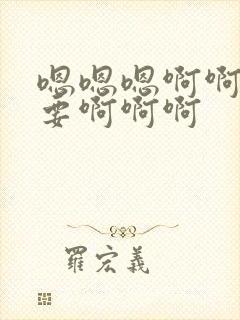 嗯嗯嗯啊啊
要啊啊啊
羅宏義